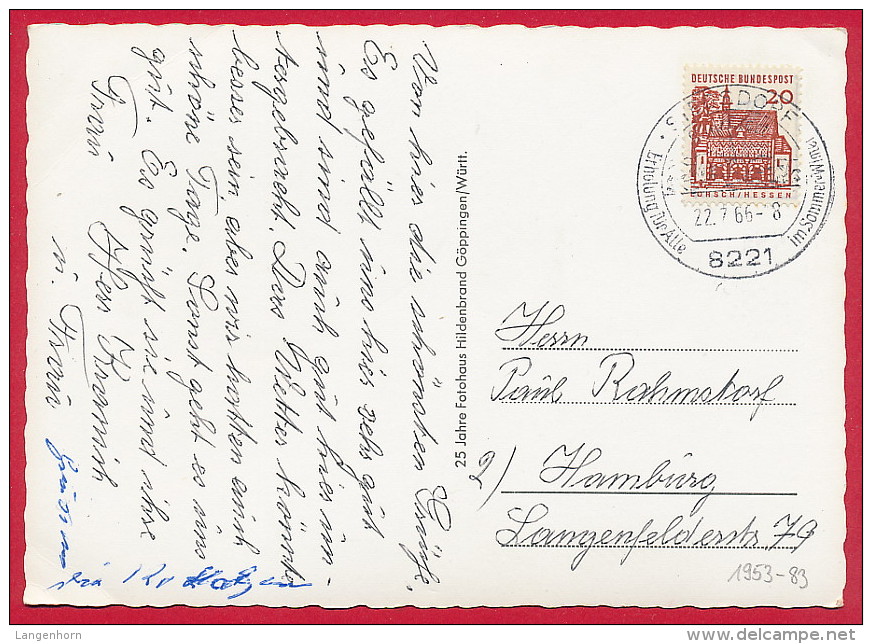 Von hier die schönsten Grüße.
Es gefällt uns hier sehr gut
und sind auch gut hier un-
tergebracht. Das Wetter könnte
besser sein, aber wir hatten auch
schöne Tage. Sonst geht es uns
gut. Es grüßt sie und ihre
Frau Herr Kramich
u. Frau
25 Jahre Fotohaus Hildenbrand Göppingen/Württ.
DEUTSCHE BUNDESPOST
20
LORSCH/HESSEN
SIEGSDORF
Erholung für Alle
im Sommer u. Winter
22.7.66-8
8221
Herrn
Paul Rahmstorf
2) Hamburg
Langenfelderstr. 79
1953-83
Langenhorn
www.delcampe.net